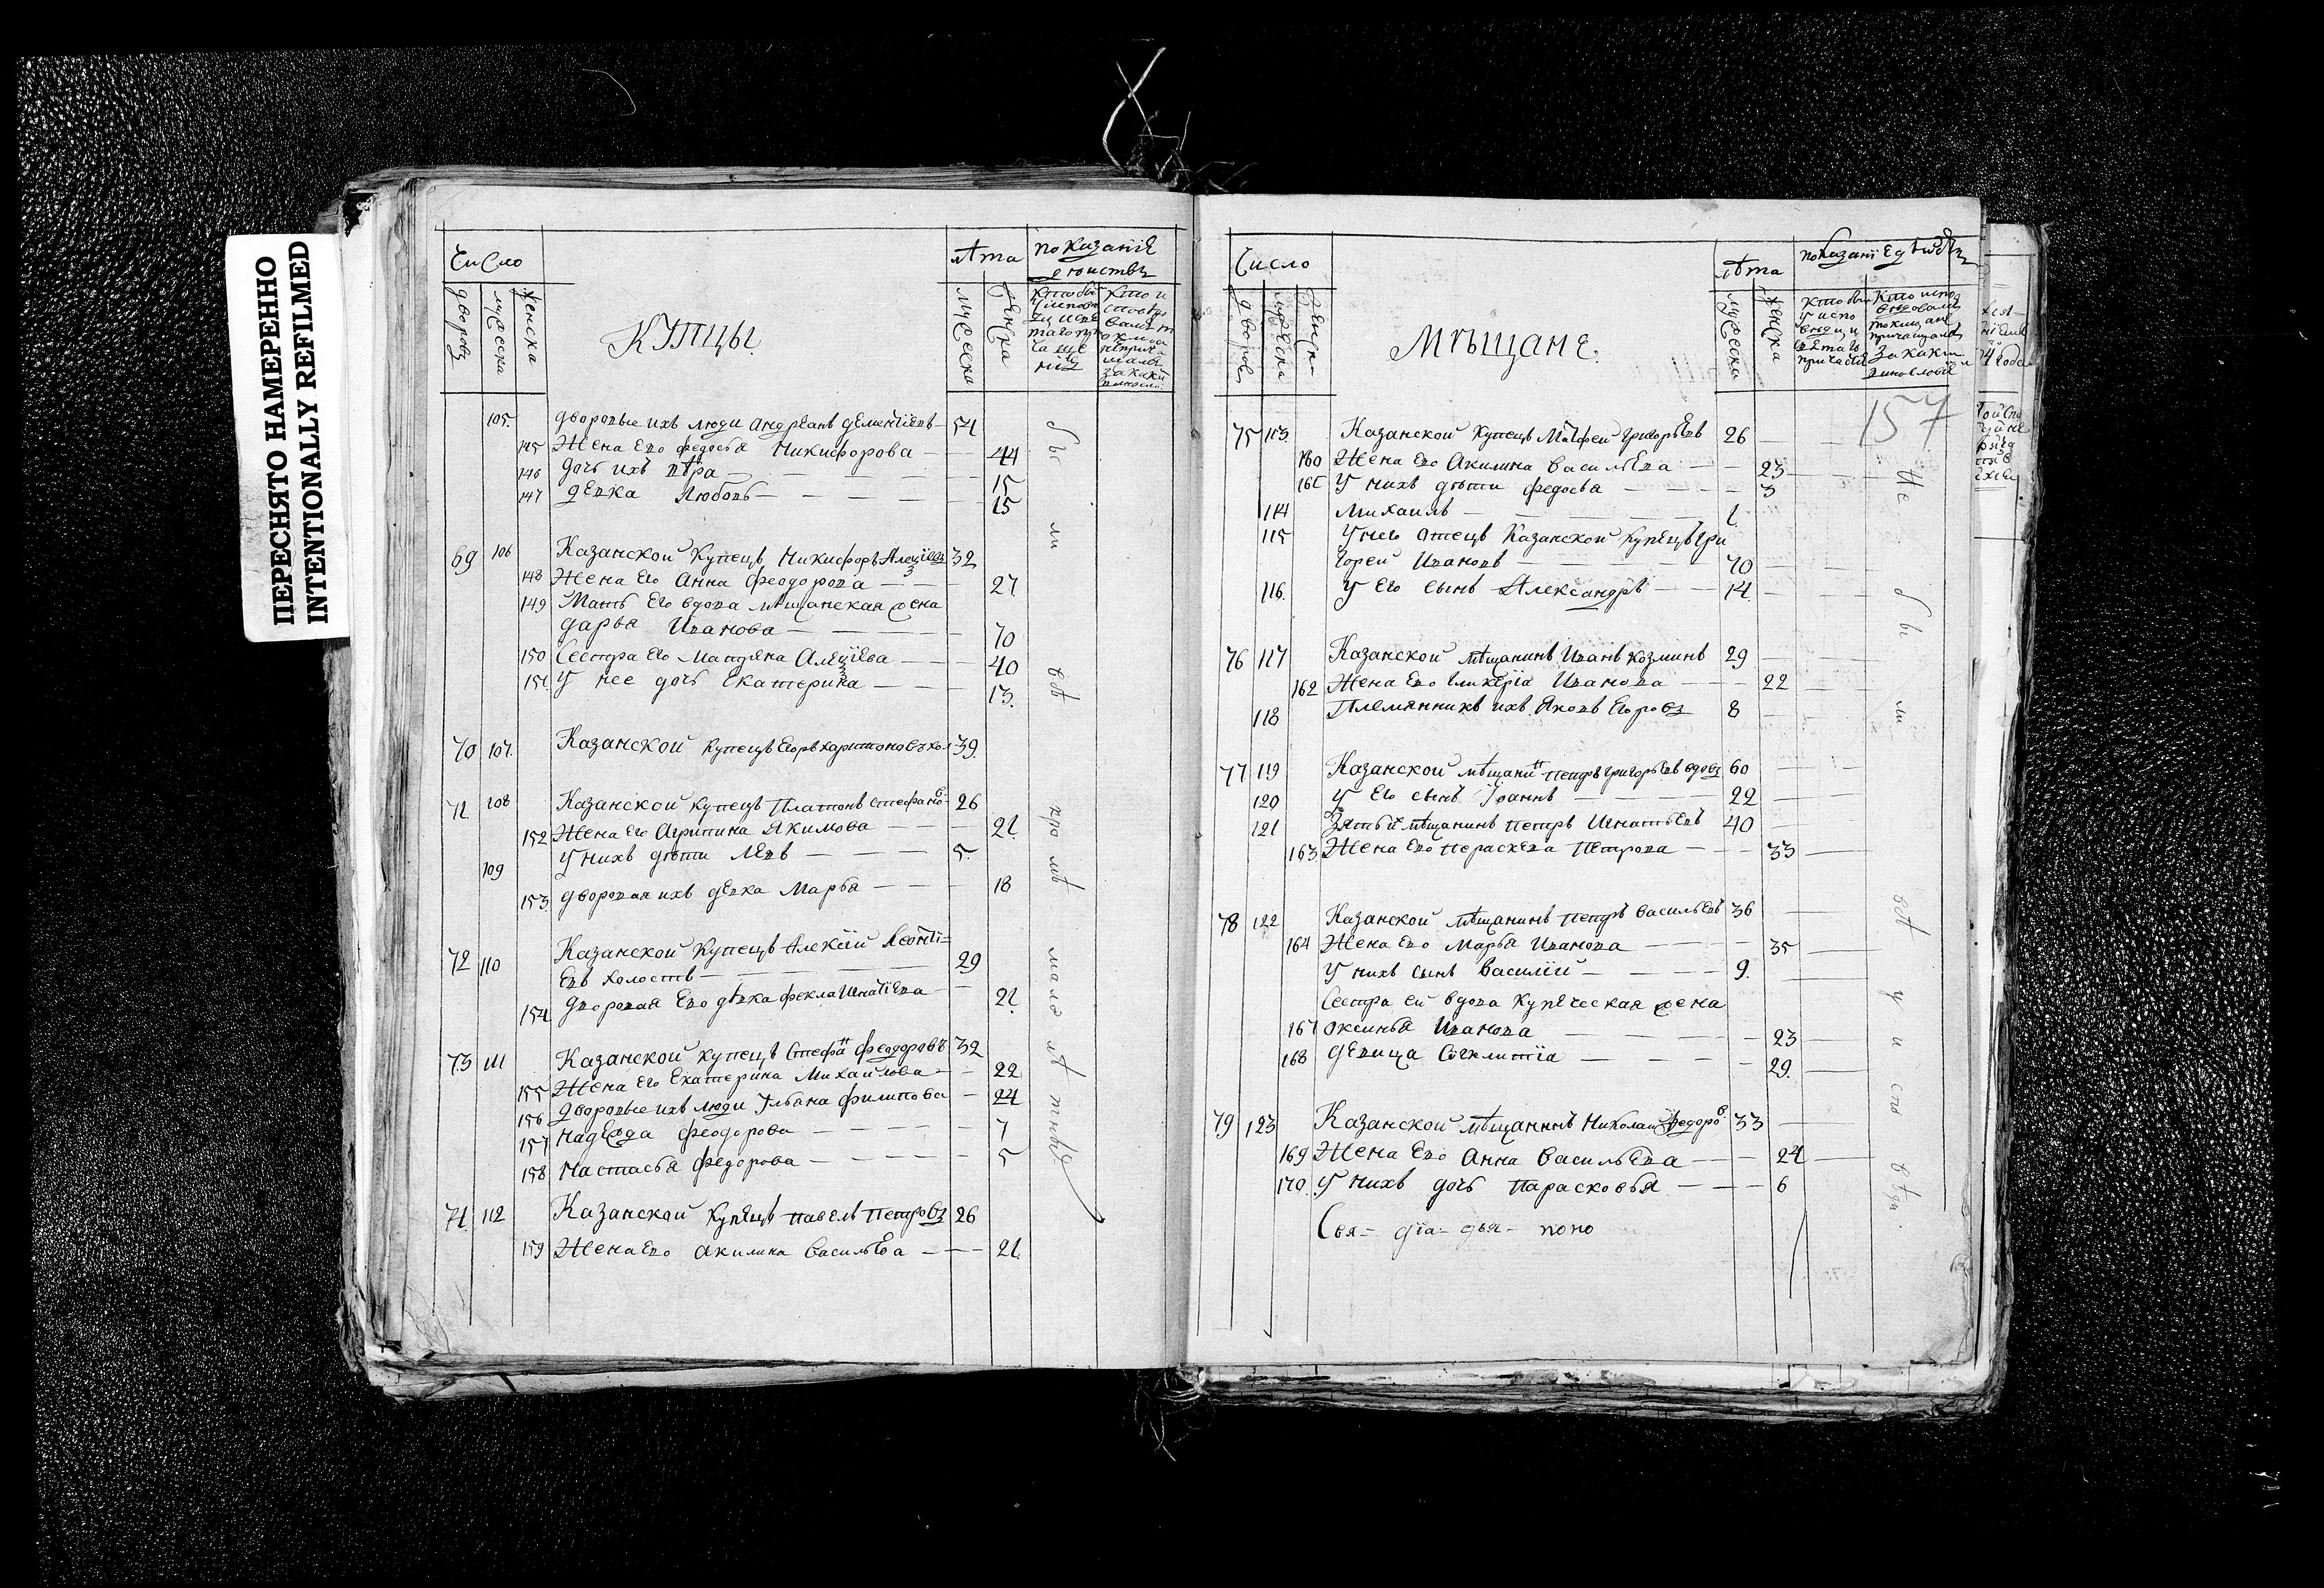 ПЕРЕСНЯТО НАМЕРЕННО
INTENTIONALLY REFILMED
Число
лѣта
показанїе
дѣиствъ
дворовъ
мужеска
женска
КУПЦЫ.
мужеска
женска
105. дворовые ихъ люди Андреанъ дементїевъ 54
145 Жена Его федосья Никифорова 44
146 дочь ихъ вѣра 15
147 девка Любовь 15
69 106 Казанской Купецъ Никифоръ Алеѯїевъ 32
148 Жена Его Анна феодорова 27
149 Мать Его вдова мѣщанская жена
дарья Иванова 70
150 Сестра Его Матрена Алеѯїева 40
151 У нее дочь Екатерина 13.
70 107. Казанской купецъ Егоръ харитоновъ хол 39.
71 108 Казанской купецъ Платонъ Стефановъ 26
152 Жена Его Агрипина Якимова 21.
109 У нихъ дѣти Левъ 5.
153 дворовая ихъ девка Марфа 18
72 110 Казанской Купецъ Алекѯїй Леонтї=
евъ холостъ 29
154 Дворовая Его дѣвка фекла Игнатїева 21.
73 111 Казанской купецъ Стефанъ феодоровъ 32
155 Жена Его Екатерина Михаилова 22
156 дворовые ихъ люди Ульана филипова 24
157 надежда феодорова 7
158 Настасья федорова 5
74. 112 Казанской Купецъ павелъ петровъ 26
159 Жена Его акилина васильева 21.
бы ли вѣ мало лѣтныя
Число
лѣта
показанїе дѣиствъ
дворовъ
мужеска
женска
МѢЩАНЕ.
мужеска
женска
157
75 113. Казанской купецъ Матфеи григорьевъ 26
160 Жена Его Акилина васильева 23
161 У нихъ дѣти федосья 3
114 Михаилъ 1.
115 У него отецъ Казанской купецъ гри
горей Ивановъ 70
116. У Его сынъ Александръ 14.
76 117 Казанской мѣщанинъ Иванъ козминъ 29
162 Жена Его гликерїа Иванова 22
118 Племянникъ ихъ Яковъ Егоровъ 8
77 119 Казанской мѣщанинъ петръ григорьевъ вдовъ 60
120 У Его сынъ Іоаннъ 22
121 Зять й мѣщанинъ петръ Игнатьевъ 40
163 Жена Его параскева петрова 33
78 122 Казанской мѣщанинъ петръ васильевъ 36
164 Жена Его марфа Иванова 35
У нихъ сынъ василїй 9.
Сестра ей вдова купеческая жена
167 оксинья Иванова 23
168 девица Сѵнклитїа 29.
79 123 Казанской мѣщанинъ Николаи федоровъ 33
169 Жена Его Анна васильева 24
170. У нихъ дочь парасковья 6
Свя= дїа= дья= поно
не бы ли вѣ у испо вѣди.